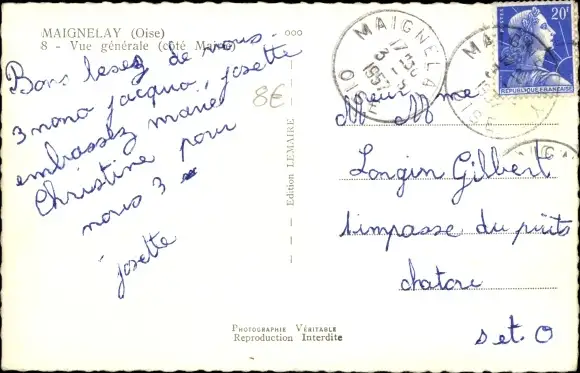 MAIGNELAY (Oise)
8 - Vue générale (côté Mairie)
Bons baisez de nous
3 mano jacqua, josette
embrassez marie
Christine pour
nous 3
josette
8€
Edition LEMAIRE
PHOTOGRAPHIE VÉRITABLE
Reproduction Interdite
MAIGNELAY
OISE
1957
POSTES
20F
REPUBLIQUE FRANÇAISE
Meur Mme
Longin Gilbert
1 impasse du puits
chatou
S et O